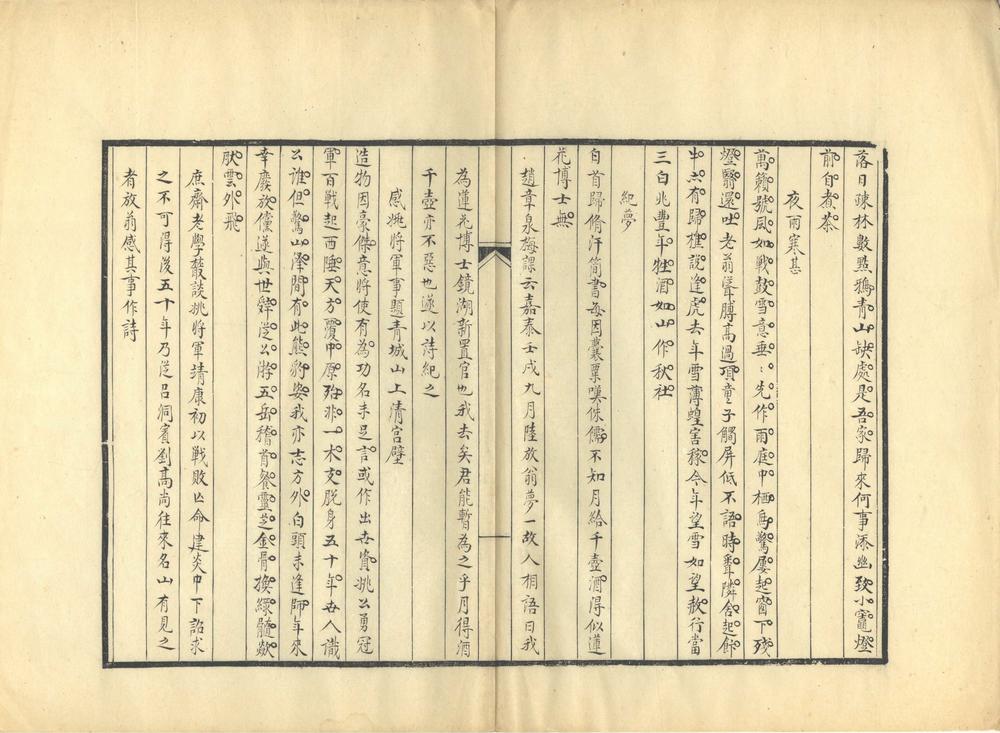 落日疎林數點鴉青山缺處是吾家歸來何事添幽致小竈燈
前自煮茶
夜雨寒甚
萬籟號風如戰鼓雪意垂：先作雨庭中栖鳥驚屢起窗下殘
燈翳還吐老翁聳膊高過項童子觸屏低不語時聞隣舍起飰
牛亦有歸樵說逢虎去年雪薄蝗害稼今年望雪如望赦行當
三白兆豐年牲酒如山作秋社
紀夢
白首歸脩汗簡書每因囊粟嘆侏儒不知月給千壺酒得似蓮
花博士無
趙章泉梅課云嘉泰壬戌九月陸放翁夢一故人相語曰我
為蓮花博士鏡湖新置官也我去矣君能暫為之乎月得酒
千壺亦不惡也遂以詩紀之
感姚將軍事題青城山上清宮壁
造物因豪傑意將使有為功名未足言或作出世資姚公勇冠
軍百戰起西陲天方覆中原殆非一木支脫身五十年世人識
公誰但驚山澤間有此熊豹姿我亦志方外白頭未逢師年來
幸廢放儻遂與世辭從公游五岳稽首餐靈芝金骨換綠髓歘
肰雲外飛
庶齋老學叢談姚將軍靖康初以戰敗亡命建炎中下詔求
之不可得後五十年乃從呂洞賓劉高尚往來名山有見之
者放翁感其事作詩